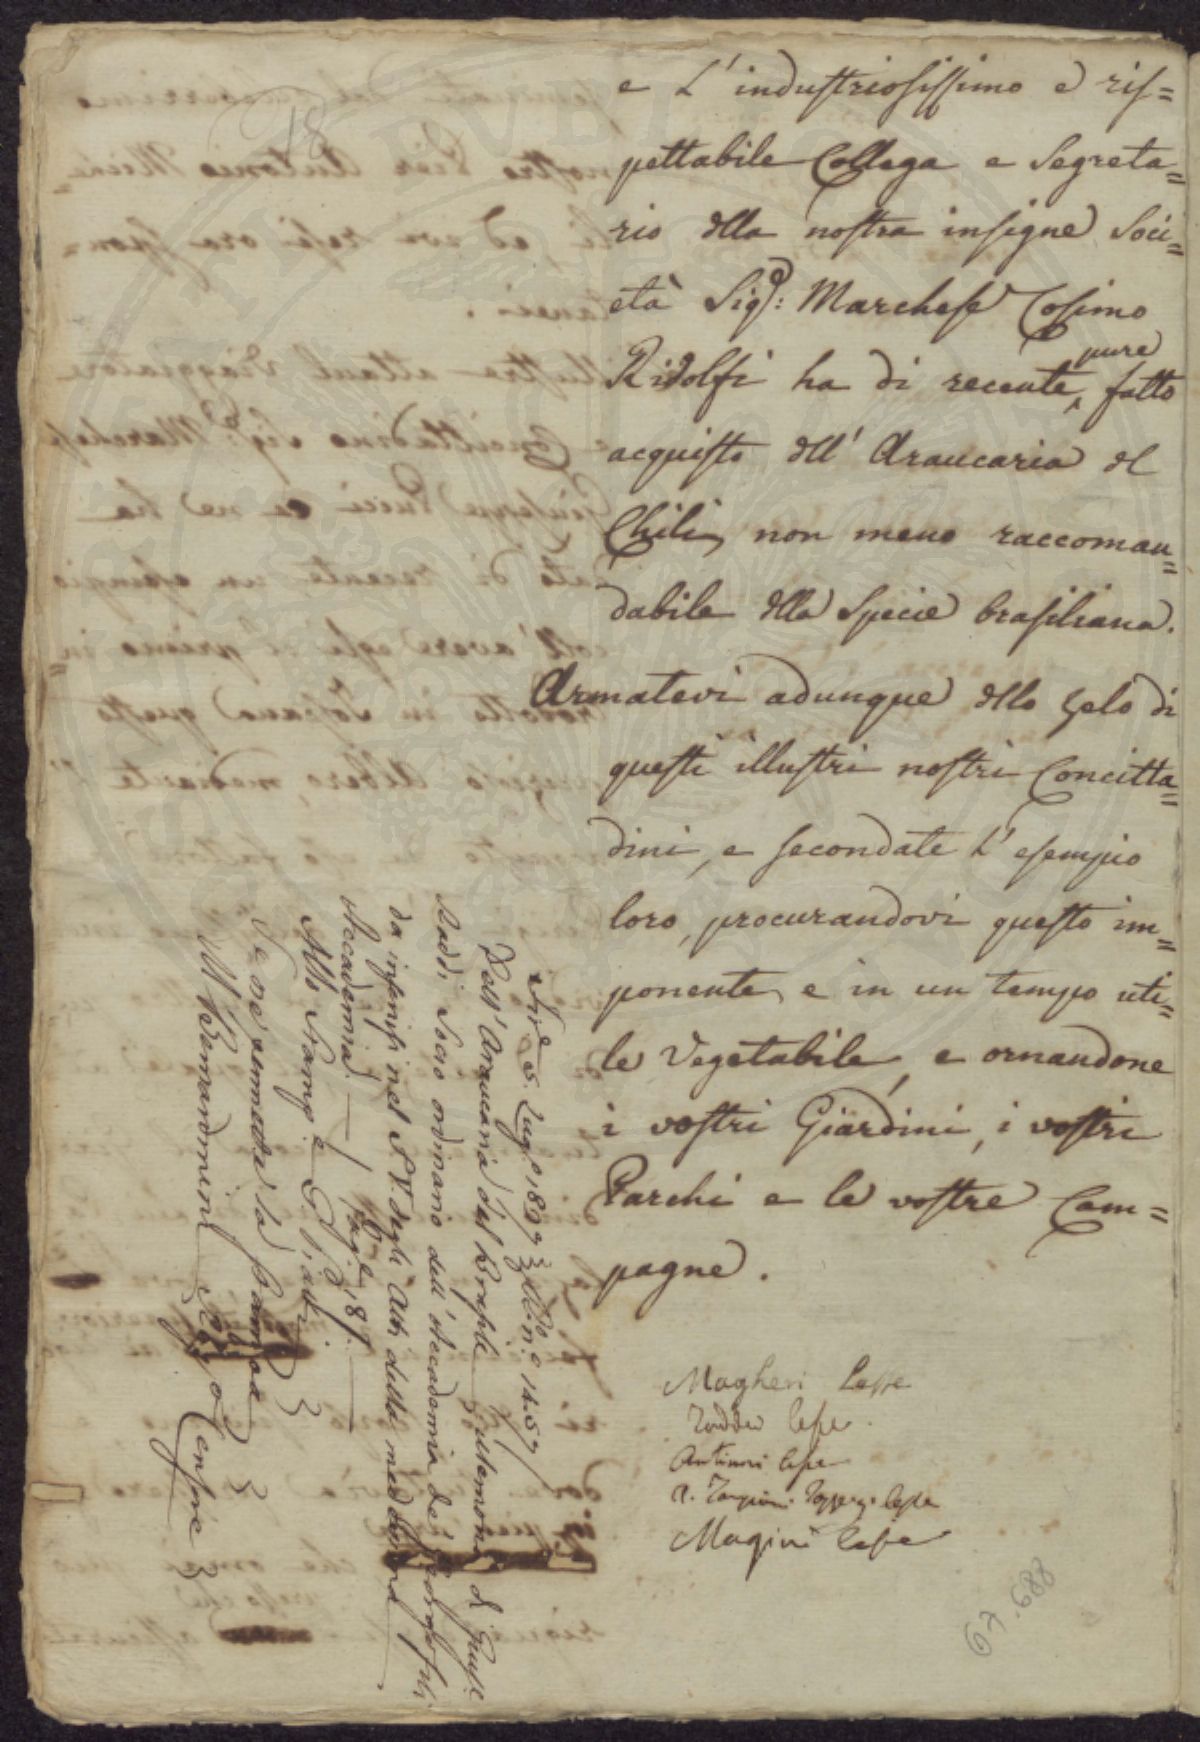 e L'industriosissimo e ris=
pettabile Collega e Segreta=
rio della nostra insigne Soci=
età Sig.e: Marchese Cosimo
Ridolfi ha di recente pure fatto
acquisto dell' Araucaria del
Chili, non meno raccoman=
dabile della Specie brasiliana.
Armatevi adunque dello zelo di
questi illustri nostri Concitta=
dini, e secondate L'esempio
loro, procurandovi questo im=
ponente, e in un tempo uti=
le Vegetabile, e ornandone
i vostri Giardini, i vostri
Parchi e le vostre Cam=
pagne.
Magheri Lesse
Raddi lesse
Antinori lesse
A. Targioni Tozzetti lesse
Magini lesse
67. 688
5. Lug.
Dell' Araucaria del Brasile
Raddi Socio ordinario dell' Accademia de' Georgofili
da inserirsi nel degli Atti della med
Accademia.
Alla Stamp.a
Se ne permetta la Stampa
Censore